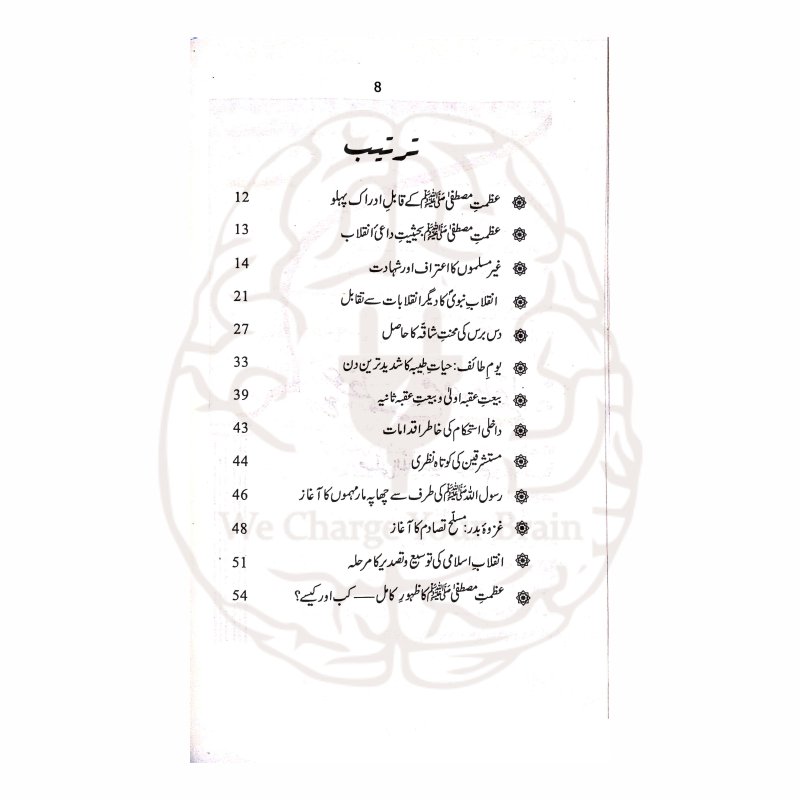 8
ترتیب
عظمتِ مصطفیٰ ﷺ کے قابلِ ادراک پہلو 12
عظمتِ مصطفیٰ ﷺ بحیثیتِ داعیٔ انقلاب 13
غیر مسلموں کا اعتراف اور شہادت 14
انقلابِ نبویؐ کا دیگر انقلابات سے تقابل 21
دس برس کی محنتِ شاقّہ کا حاصل 27
یومِ طائف: حیاتِ طیبہ کا شدید ترین دن 33
بیعتِ عقبہ اولیٰ و بیعتِ عقبہ ثانیہ 39
داخلی استحکام کی خاطر اقدامات 43
مستشرقین کی کوتاہ نظری 44
رسول اللہ ﷺ کی طرف سے چھاپہ مار مہموں کا آغاز 46
غزوۂ بدر: مسلّح تصادم کا آغاز 48
انقلابِ اسلامی کی توسیع و تصدیر کا مرحلہ 51
عظمتِ مصطفیٰ ﷺ کا ظہورِ کامل — کب اور کیسے؟ 54
We Charge Your Brain